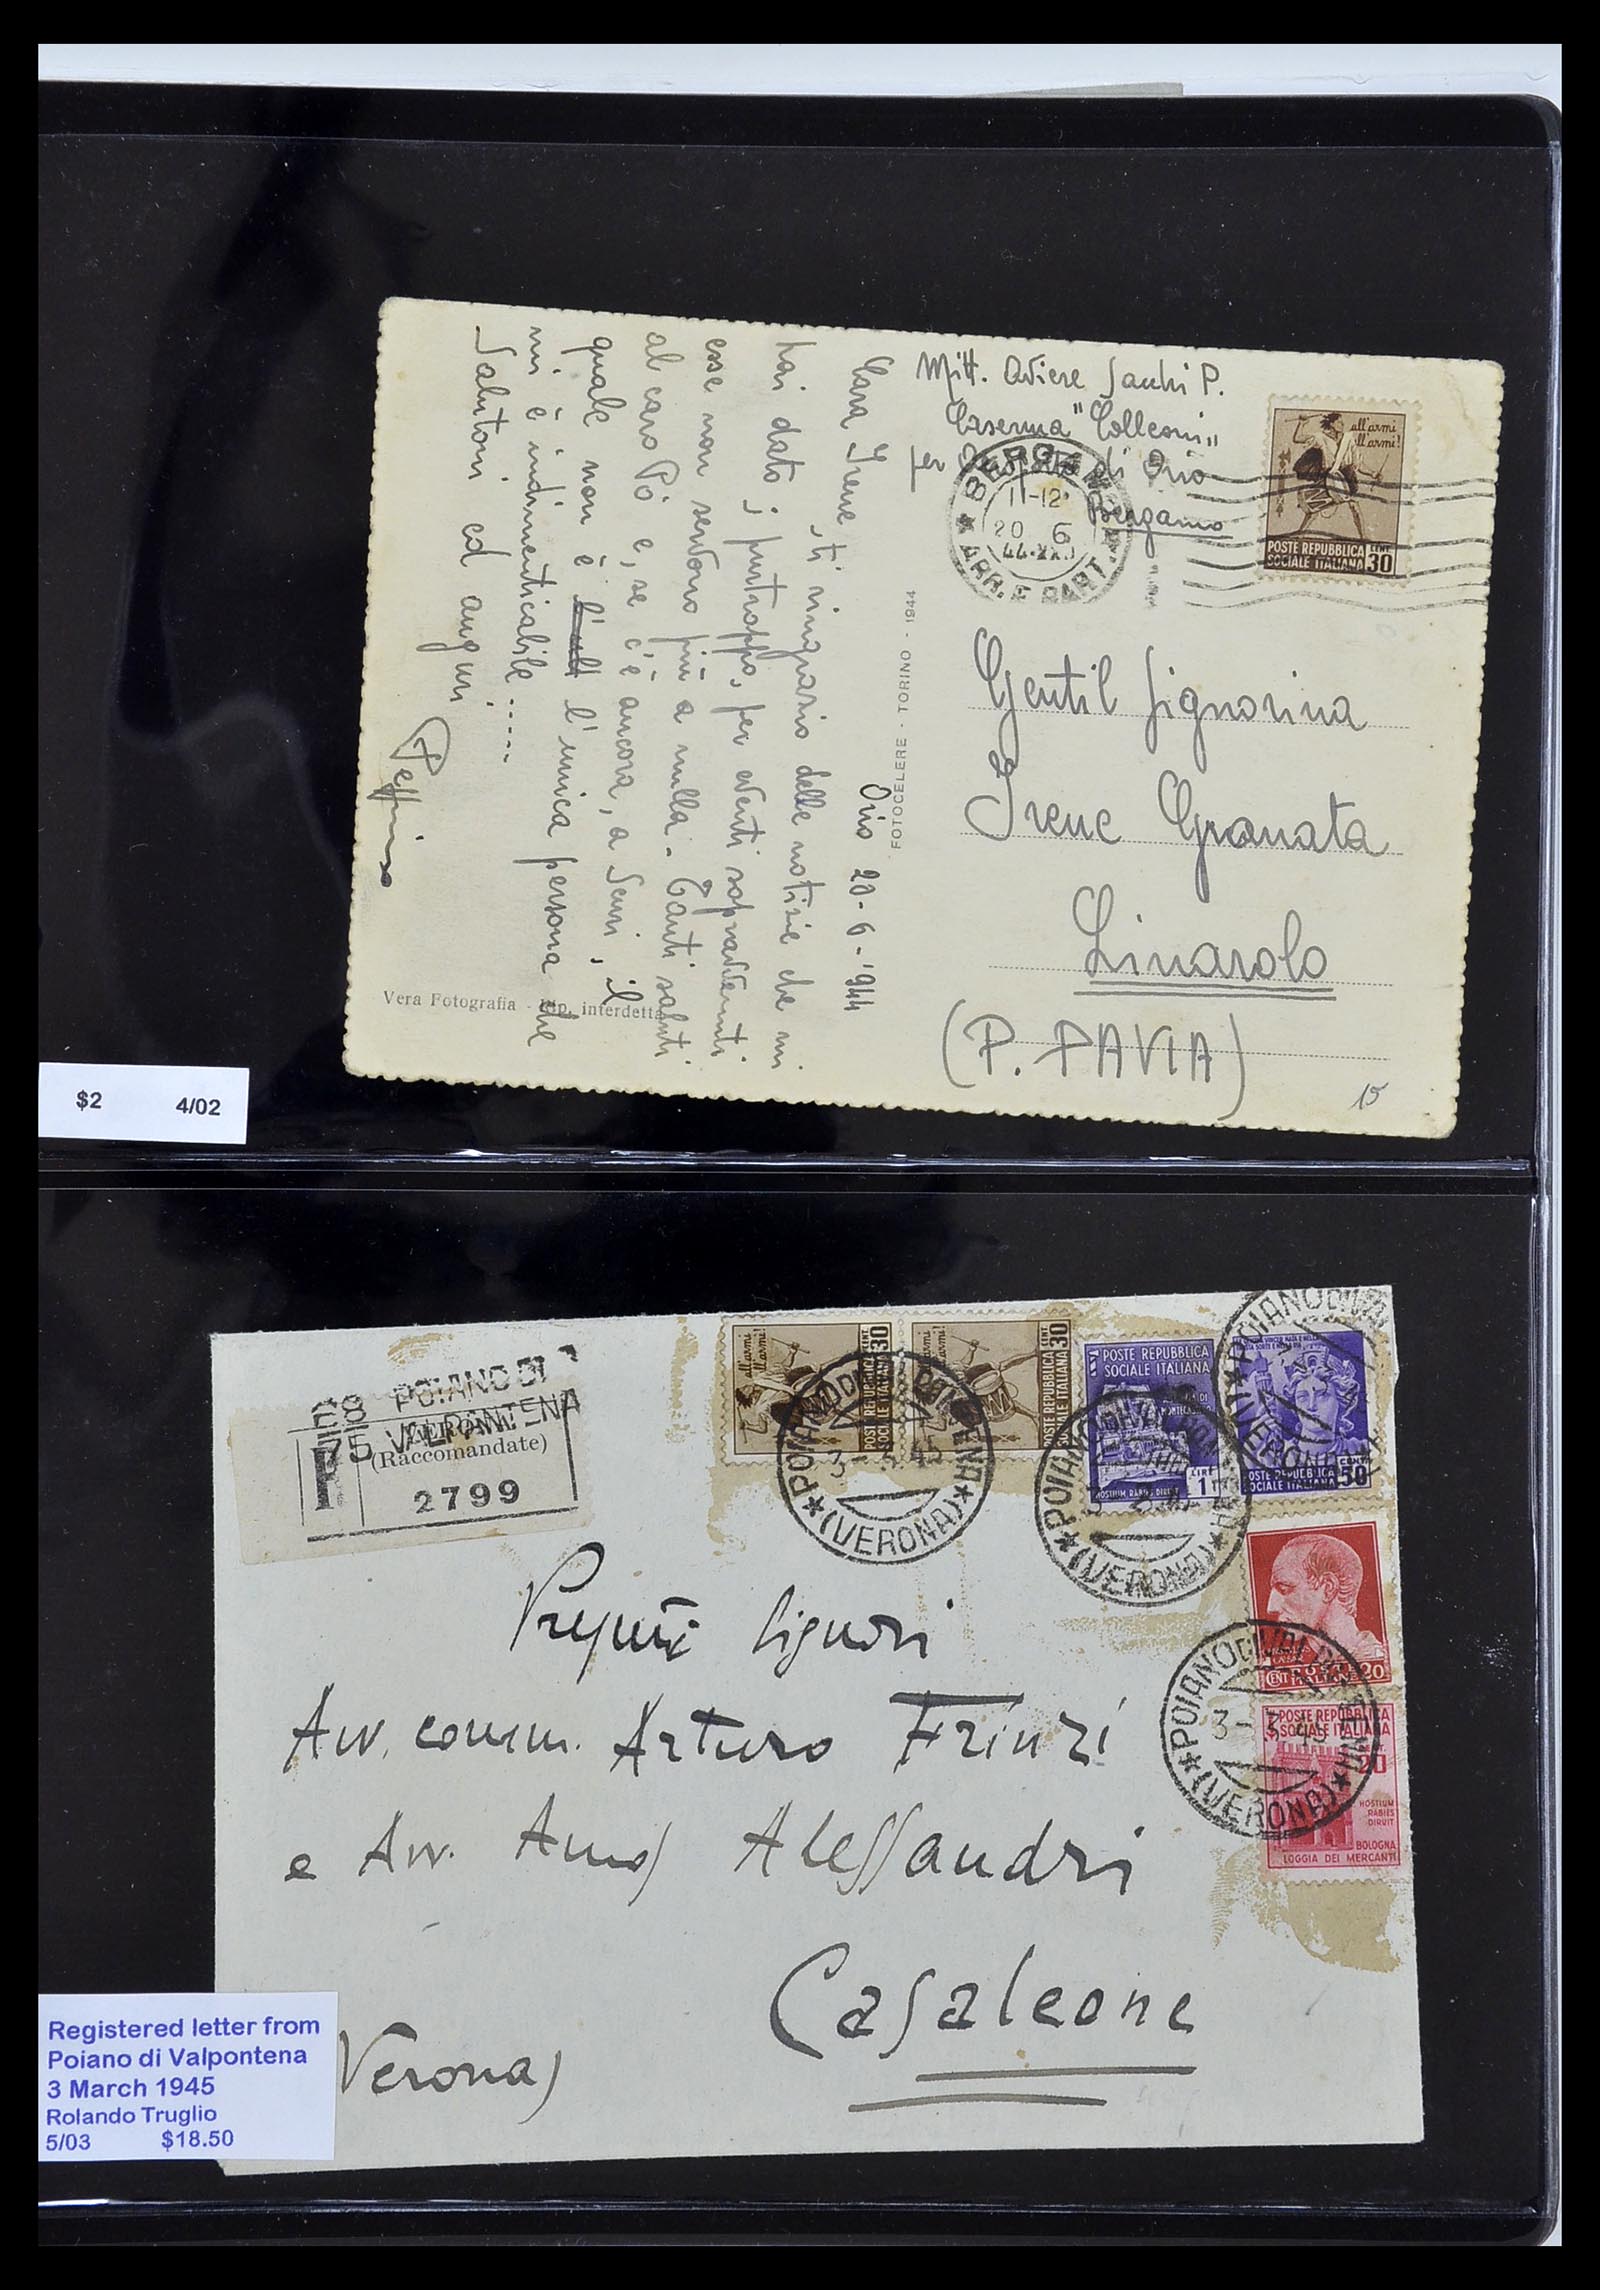 Mitt. Aviere Sacchi P.
Caserma "Colleoni"
per Orio di Orio
Bergamo
BERGAMO
11-12
20 6
44·XXII
ARR. E PART.
all'armi
all'armi!
POSTE REPUBBLICA
SOCIALE ITALIANA
CENT 30
Orio 20-6-'944
Cara Irene, ti ringrazio delle notizie che mi
hai dato; purtroppo, per eventi sopravvenuti
esse non servono più a nulla - Tanti saluti
al caro Pò e, se c'è ancora, a Seni, il
quale non è l'unica persona che
mi è indimenticabile......
Salutoni ed auguri
Peppino
FOTOCELERE - TORINO - 1944
Vera Fotografia - Rip. interdetta
Gentil Signorina
Irene Granata
Linarolo
(P. PAVIA)
15
$2 4/02
POIANO DI
VALPANTENA
75
(Raccomandate)
R
2799
all'armi
all'armi!
POSTE REPUBBLICA
SOCIALE ITALIANA
CENT 30
all'armi!
POSTE REPUBBLICA
SOCIALE ITALIANA
CENT 30
POSTE REPUBBLICA
SOCIALE ITALIANA
MONTECASSINO
HOSTIUM RABIES DIRUIT
LIRE 1
POSTE REPUBBLICA
SOCIALE ITALIANA
CENT 50
CENT 20
POSTE REPUBBLICA
SOCIALE ITALIANA
20
HOSTIUM
RABIES
DIRUIT
BOLOGNA
LOGGIA DEI MERCANTI
POIANO DI VALPANTENA
3-3.45
(VERONA)
POIANO DI VALPANTENA
(VERONA)
POIANO DI VALPANTENA
(VERONA)
POIANO DI VALPANTENA
3-3.45
(VERONA)
Signori
Avv. comm. Arturo Frinzi
e Avv. Alessandri
Casaleone
Verona)
Registered letter from
Poiano di Valpontena
3 March 1945
Rolando Truglio
5/03 $18.50